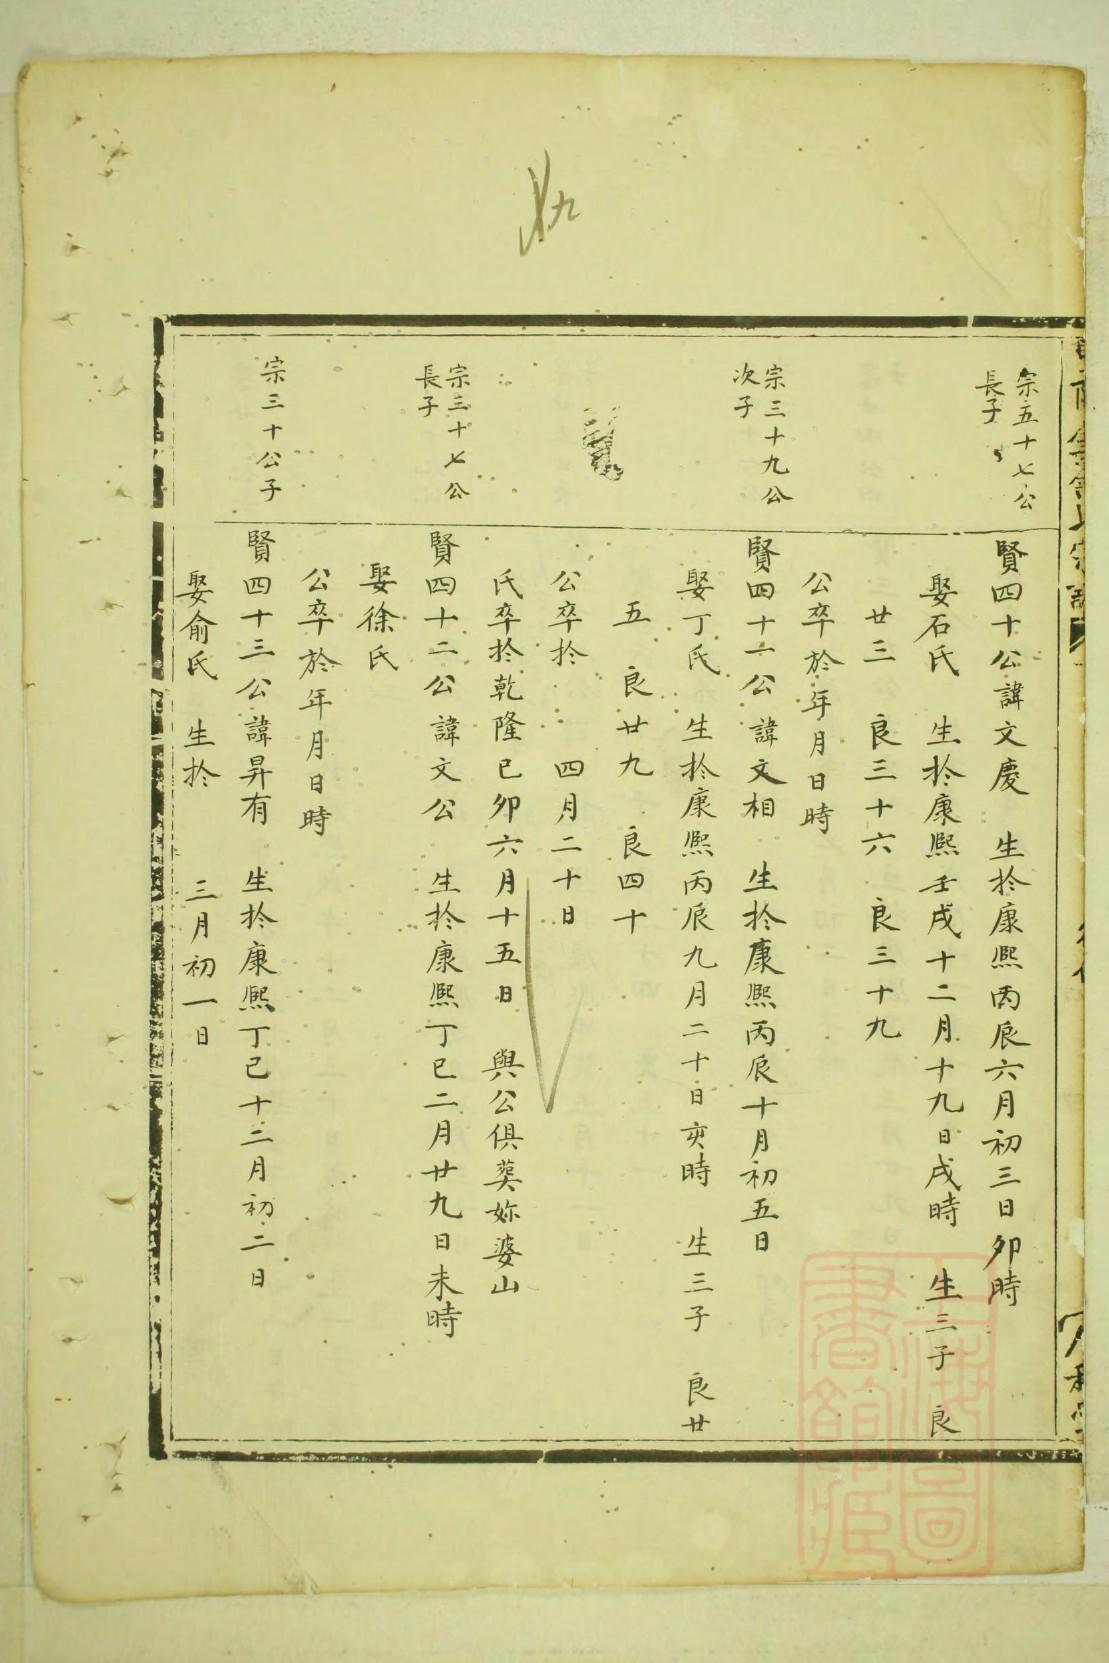 宗五十七公
長子
賢四十公諱文慶　生扵康熈丙辰六月初三日夘時
娶石氏　生扵康熈壬戌十二月十九日戌時　生三子　良
廿三　良三十六　良三十九
公卒於年月日時
宗三十九公
次子
賢四十一公諱文相　生扵康熈丙辰十月初五日
娶丁氏　生扵康熈丙辰九月二十日亥時　生三子　良廿
五　良廿九　良四十
公卒扵　四月二十日
氏卒扵乾隆已卯六月十五日　與公俱葖妳婆山
宗三十七公
長子
賢四十二公諱文公　生扵康熈丁巳二月廿九日未時
娶徐氏
公卒於年月日時
宗三十公子
賢四十三公諱昇有　生扵康熈丁巳十二月初二日
娶俞氏　生扵　三月初一日